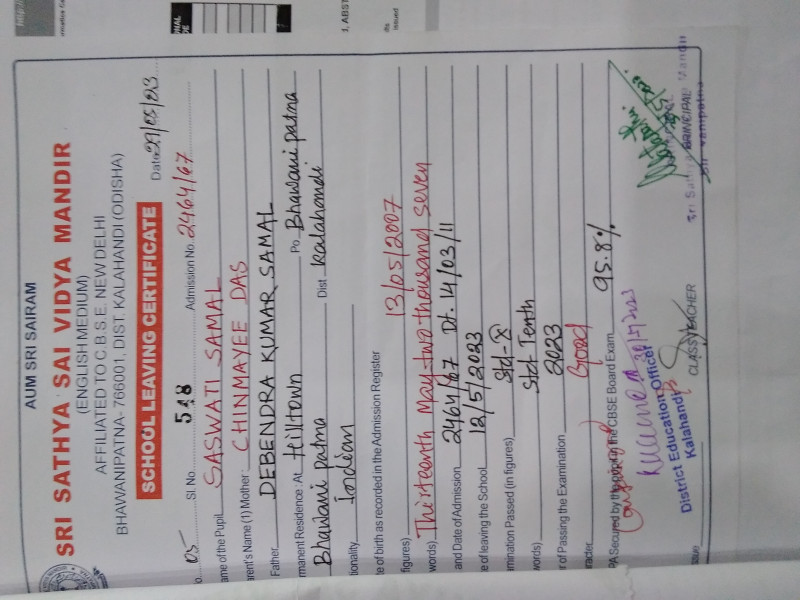 AUM SRI SAIRAM
SRI SATHYA SAI VIDYA MANDIR
(ENGLISH MEDIUM)
AFFILIATED TO C.B.S.E. NEW DELHI
BHAWANIPATNA- 766001, DIST. KALAHANDI (ODISHA)
SCHOOL LEAVING CERTIFICATE
Date 29/05/23
o. 05 Sl. No. 528 Admission No. 2464/67
ame of the Pupil SASWATI SAMAL
arent's Name (1) Mother : CHINMAYEE DAS
Father DEBENDRA KUMAR SAMAL
rmanent Residence : At Hilltown Po Bhawanipatna
Bhawanipatna Dist Kalahandi
tionality Indian
te of birth as recorded in the Admission Register
figures) 13/05/2007
words) Thirteenth May two thousand seven
and Date of Admission 2464/67 Dt. 14/03/11
te of leaving the School 12/5/2023
mination Passed (in figures) Std-X
words) Std Tenth
r of Passing the Examination 2023
racter Good
PA Secured by the pupil in the CBSE Board Exam 95.8%
District Education Officer
Kalahandi
CLASS TEACHER
PRINCIPAL
Sri Sathya Mandir
issue
1. ABST
issued